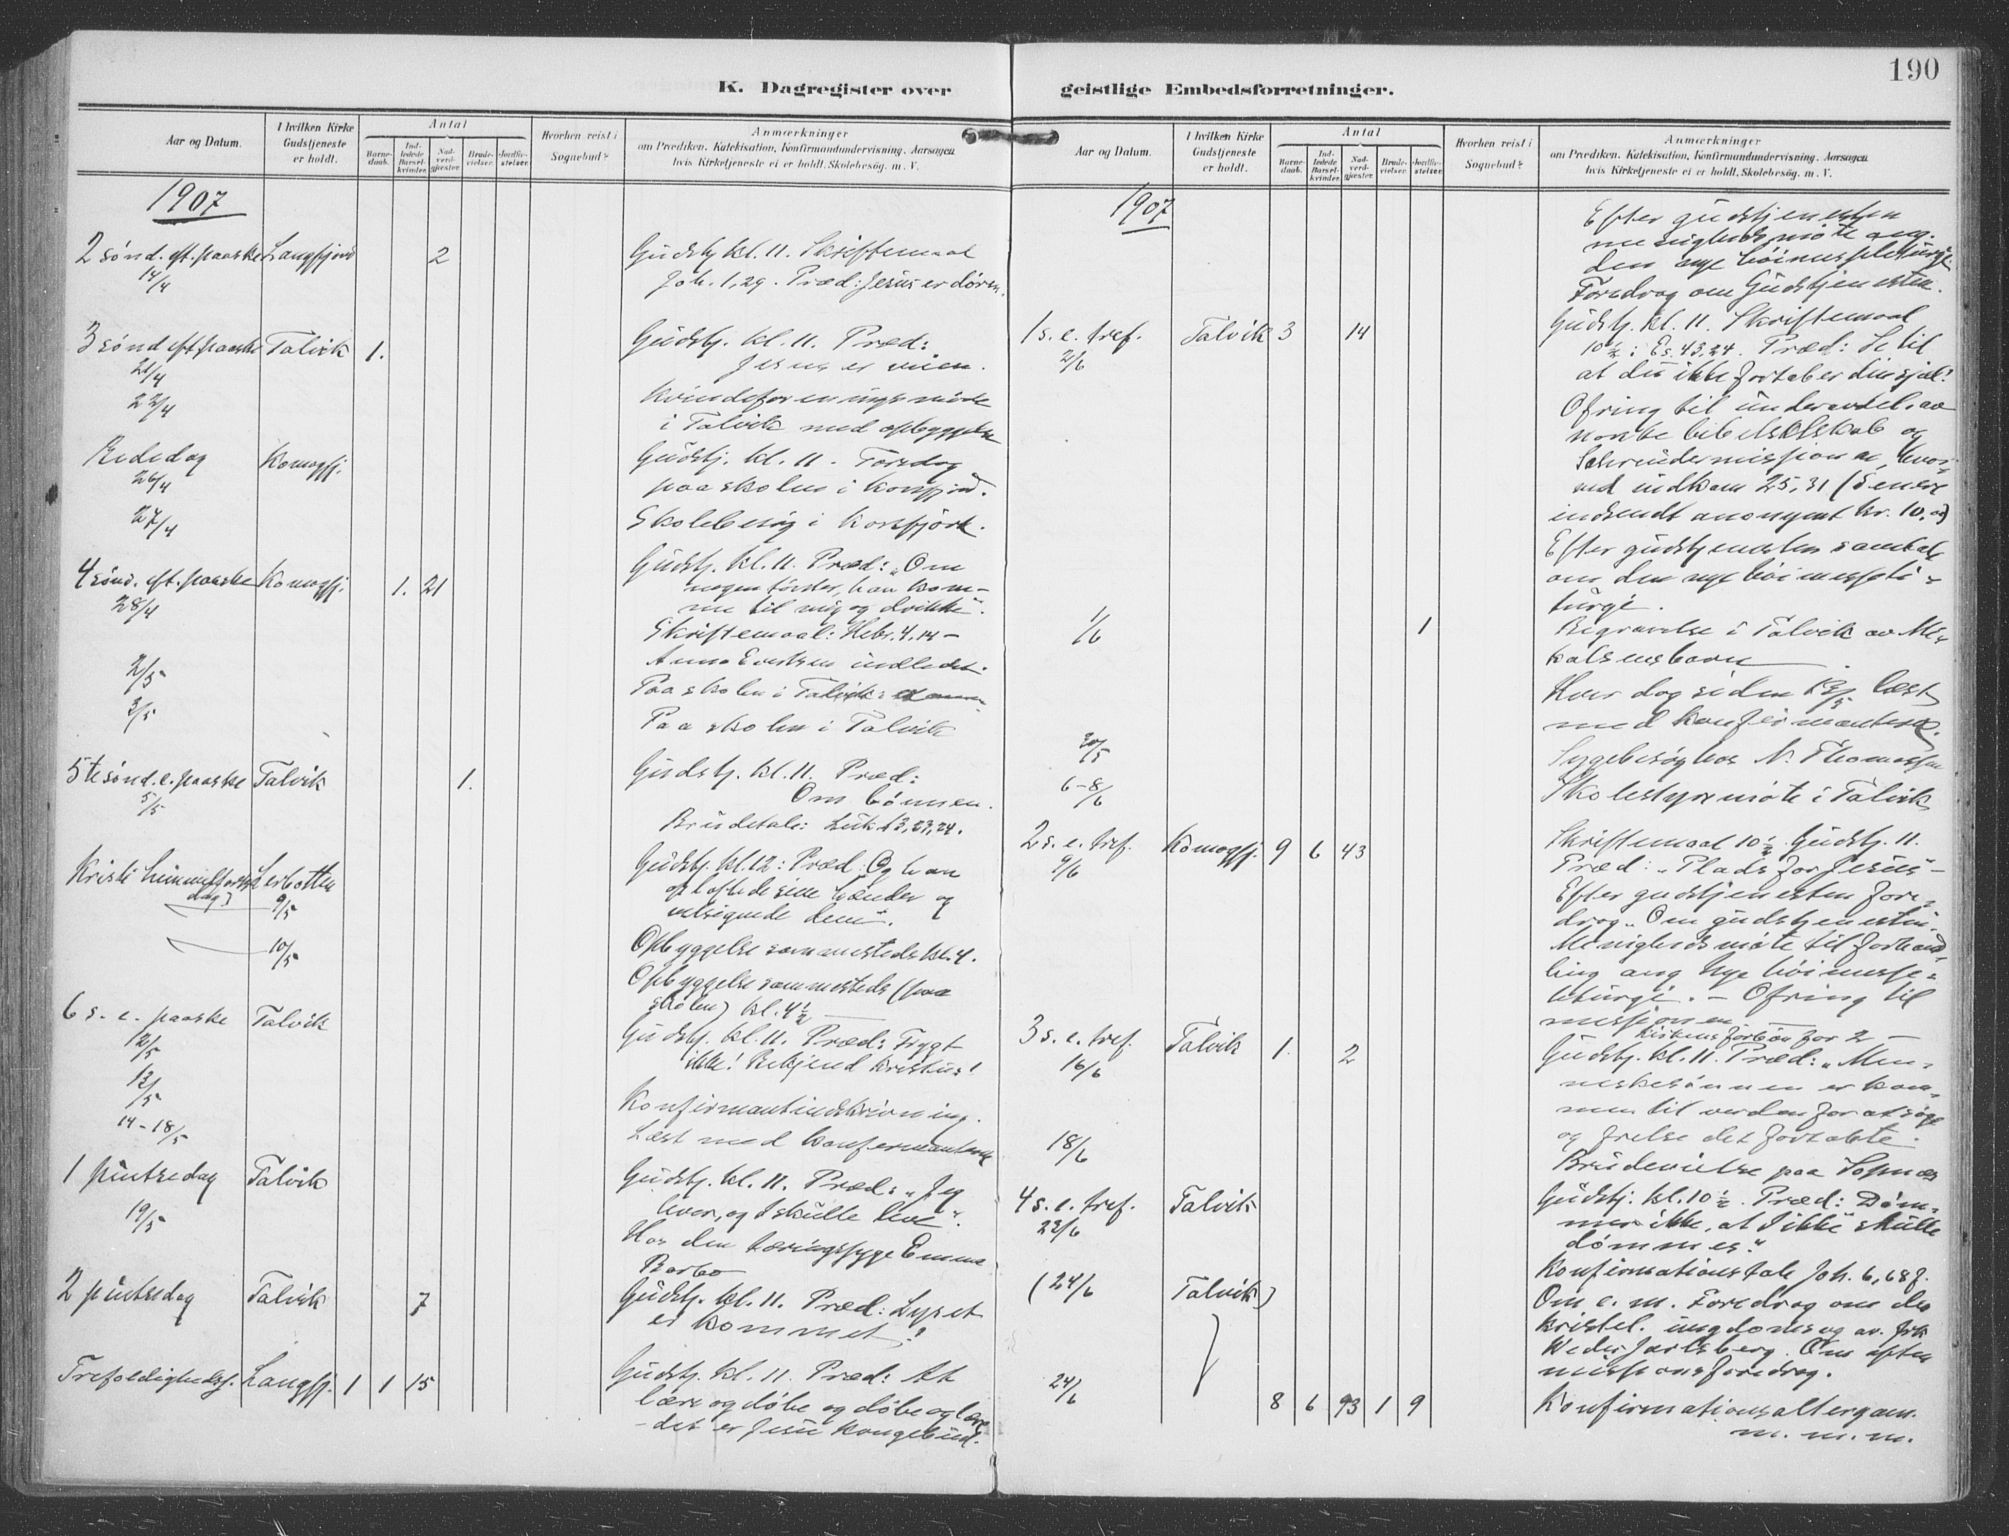 190
K. Dagregister over
Aar og Datum.
I hvilken Kirke Gudstjeneste er holdt.
Antal
Barne-daab.
Ind-ledede Barsel-kvinder.
Nad-verd-gjester.
Brude-vielser.
Jordfæ-stelser.
Hvorhen reist i Sognebud?
Anmærkninger
om Prædiken, Katekisation, Konfirmandundervisning, Aarsagen
hvis Kirketjeneste ei er holdt, Skolebesøg, m. V.
1907
2 sønd. eft. paaske Langfjord 2 Gudstj kl. 11. Skriftemaal
14/4 Joh. 1,29. Præd: Jesus er døren.
3 sønd eft paaske Talvik 1. Gudstj. kl. 11. Præd:
21/4 Jesus er veien.
22/4 Kvindeforeningsmøde
i Talvik med opbyggelse
Bededag Komagfj. Gudstj. kl. 11. Foredrag
26/4 paa skolen i Korsfjord.
27/4 Skolebesøg i Korsfjord.
4 sønd. eft. paaske Komagfj. 1. 21 Gudstj. kl. 11. Præd: „Om
28/4 nogen tørster, han kom-
me til mig og drikke“.
Skriftemaal: Hebr. 4.14 –
Anna Evertsen indledet.
2/5 Paa skolen i Talvik:
3/5 Paa skolen i Talvik
5te sønd. e. paaske Talvik 1. Gudstj. kl. 11. Præd:
5/5 Om bønnen.
Brudetale: Luk 13,23,24.
Kristi himmelfarts Lerbotten Gudstj. kl. 12: Præd: Og han
dag 9/5 opløftede sine hænder og
velsignede dem“.
10/5 Opbyggelse sammesteds kl. 4.
Opbyggelse sammesteds (paa
skolen) kl. 4 1/2
6 s. e. paaske Talvik Gudstj. kl. 11. Præd: Frygt
12/5 ikke! Bekjend Kristus!
13/5 Konfirmantindskrivning.
14–18/5 Læst med konfirmanterne
1 pintsedag Talvik Gudstj. kl. 11. Præd: „Jeg
19/5 lever, og I skulle leve“.
Hos den tæringssyge Emma
Barbo
2 pintsedag Talvik 7 Gudstj. kl. 11. Præd: Lyset
er kommet!
Trefoldighedsf. Langfj. 1 1 15 Gudstj. kl. 11. Præd: At
lære og døbe og døbe og lære
– det er Jesu kongebud.
geistlige Embedsforretninger.
Aar og Datum.
I hvilken Kirke Gudstjeneste er holdt.
Antal
Barne-daab.
Ind-ledede Barsel-kvinder.
Nad-verd-gjester.
Brude-vielser.
Jordfæ-stelser.
Hvorhen reist i Sognebud?
Anmærkninger
om Prædiken, Katekisation, Konfirmandundervisning, Aarsagen
hvis Kirketjeneste ei er holdt, Skolebesøg, m. V.
1907
Efter gudstjenesten
menighedsmøte ang.
den nye høimesseliturgi.
Foredrag om Gudstjenesten.
1 s. e. tref. Talvik 3 14 Gudstj. kl. 11. Skriftemaal
2/6 10 1/2: Es. 43,24. Præd: Se til
at du ikke fortaber din sjæl!
Ofring til underavdel. av
norske bibelselskab og
Schreudermissionen, hvor-
ved indkom 25,31 (Senere
indsendt anonymt kr. 10,00)
Efter gudstjenesten samtale
om den nye høimesseli-
turgi.
1/6 1 Begravelse i Talvik av Mi-
kalsens barn
Hver dag siden 13/5 læst
med konfirmanterne.
30/5 Sygebesøg hos N. Thomassen
6–8/6 Skolestyremøte i Talvik
2 s. e. tref. Komagfj. 9 6 43 Skriftemaal 10 1/2 Gudstj. 11.
9/6 Præd: „Plads for Jesus –
Efter gudstjenesten fore-
drag „Om gudstjenesten.
Menighedsmøte til forhand-
ling ang nye høimesse-
liturgi. – Ofring til
missionen
kirkens forbøn for 2 –
3 s. e. tref. Talvik 1. 2 Gudstj. kl. 11. Præd: „Men-
16/6 neskesønnen er kom-
men til verden for at søge
og frelse det fortabte.
18/6 Brudevielse paa Sopnæs
4 s. e. tref. Talvik Gudstj. kl. 10 1/2. Præd: Døm-
23/6 mer ikke, at I ikke skulle
dømmes“
(24/6 Talvik) Konfirmationstale Joh. 6,68f.
Om e. m. Foredrag om den
kristel. ungdomssag av frk
Wedel Jarlsberg. Om aften
missionsforedrag.
24/6 8 6 93 1 9 Konfirmationsaltergam.
m. m. m.